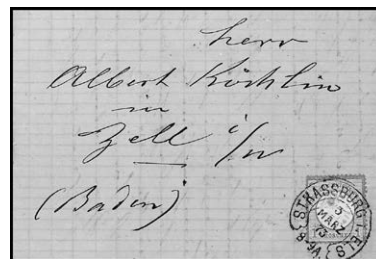 Herr
Albert Köchlin
in
Zell i/W
(Baden)
STRASSBURG i. ELS
3
MÄRZ
8-9A.